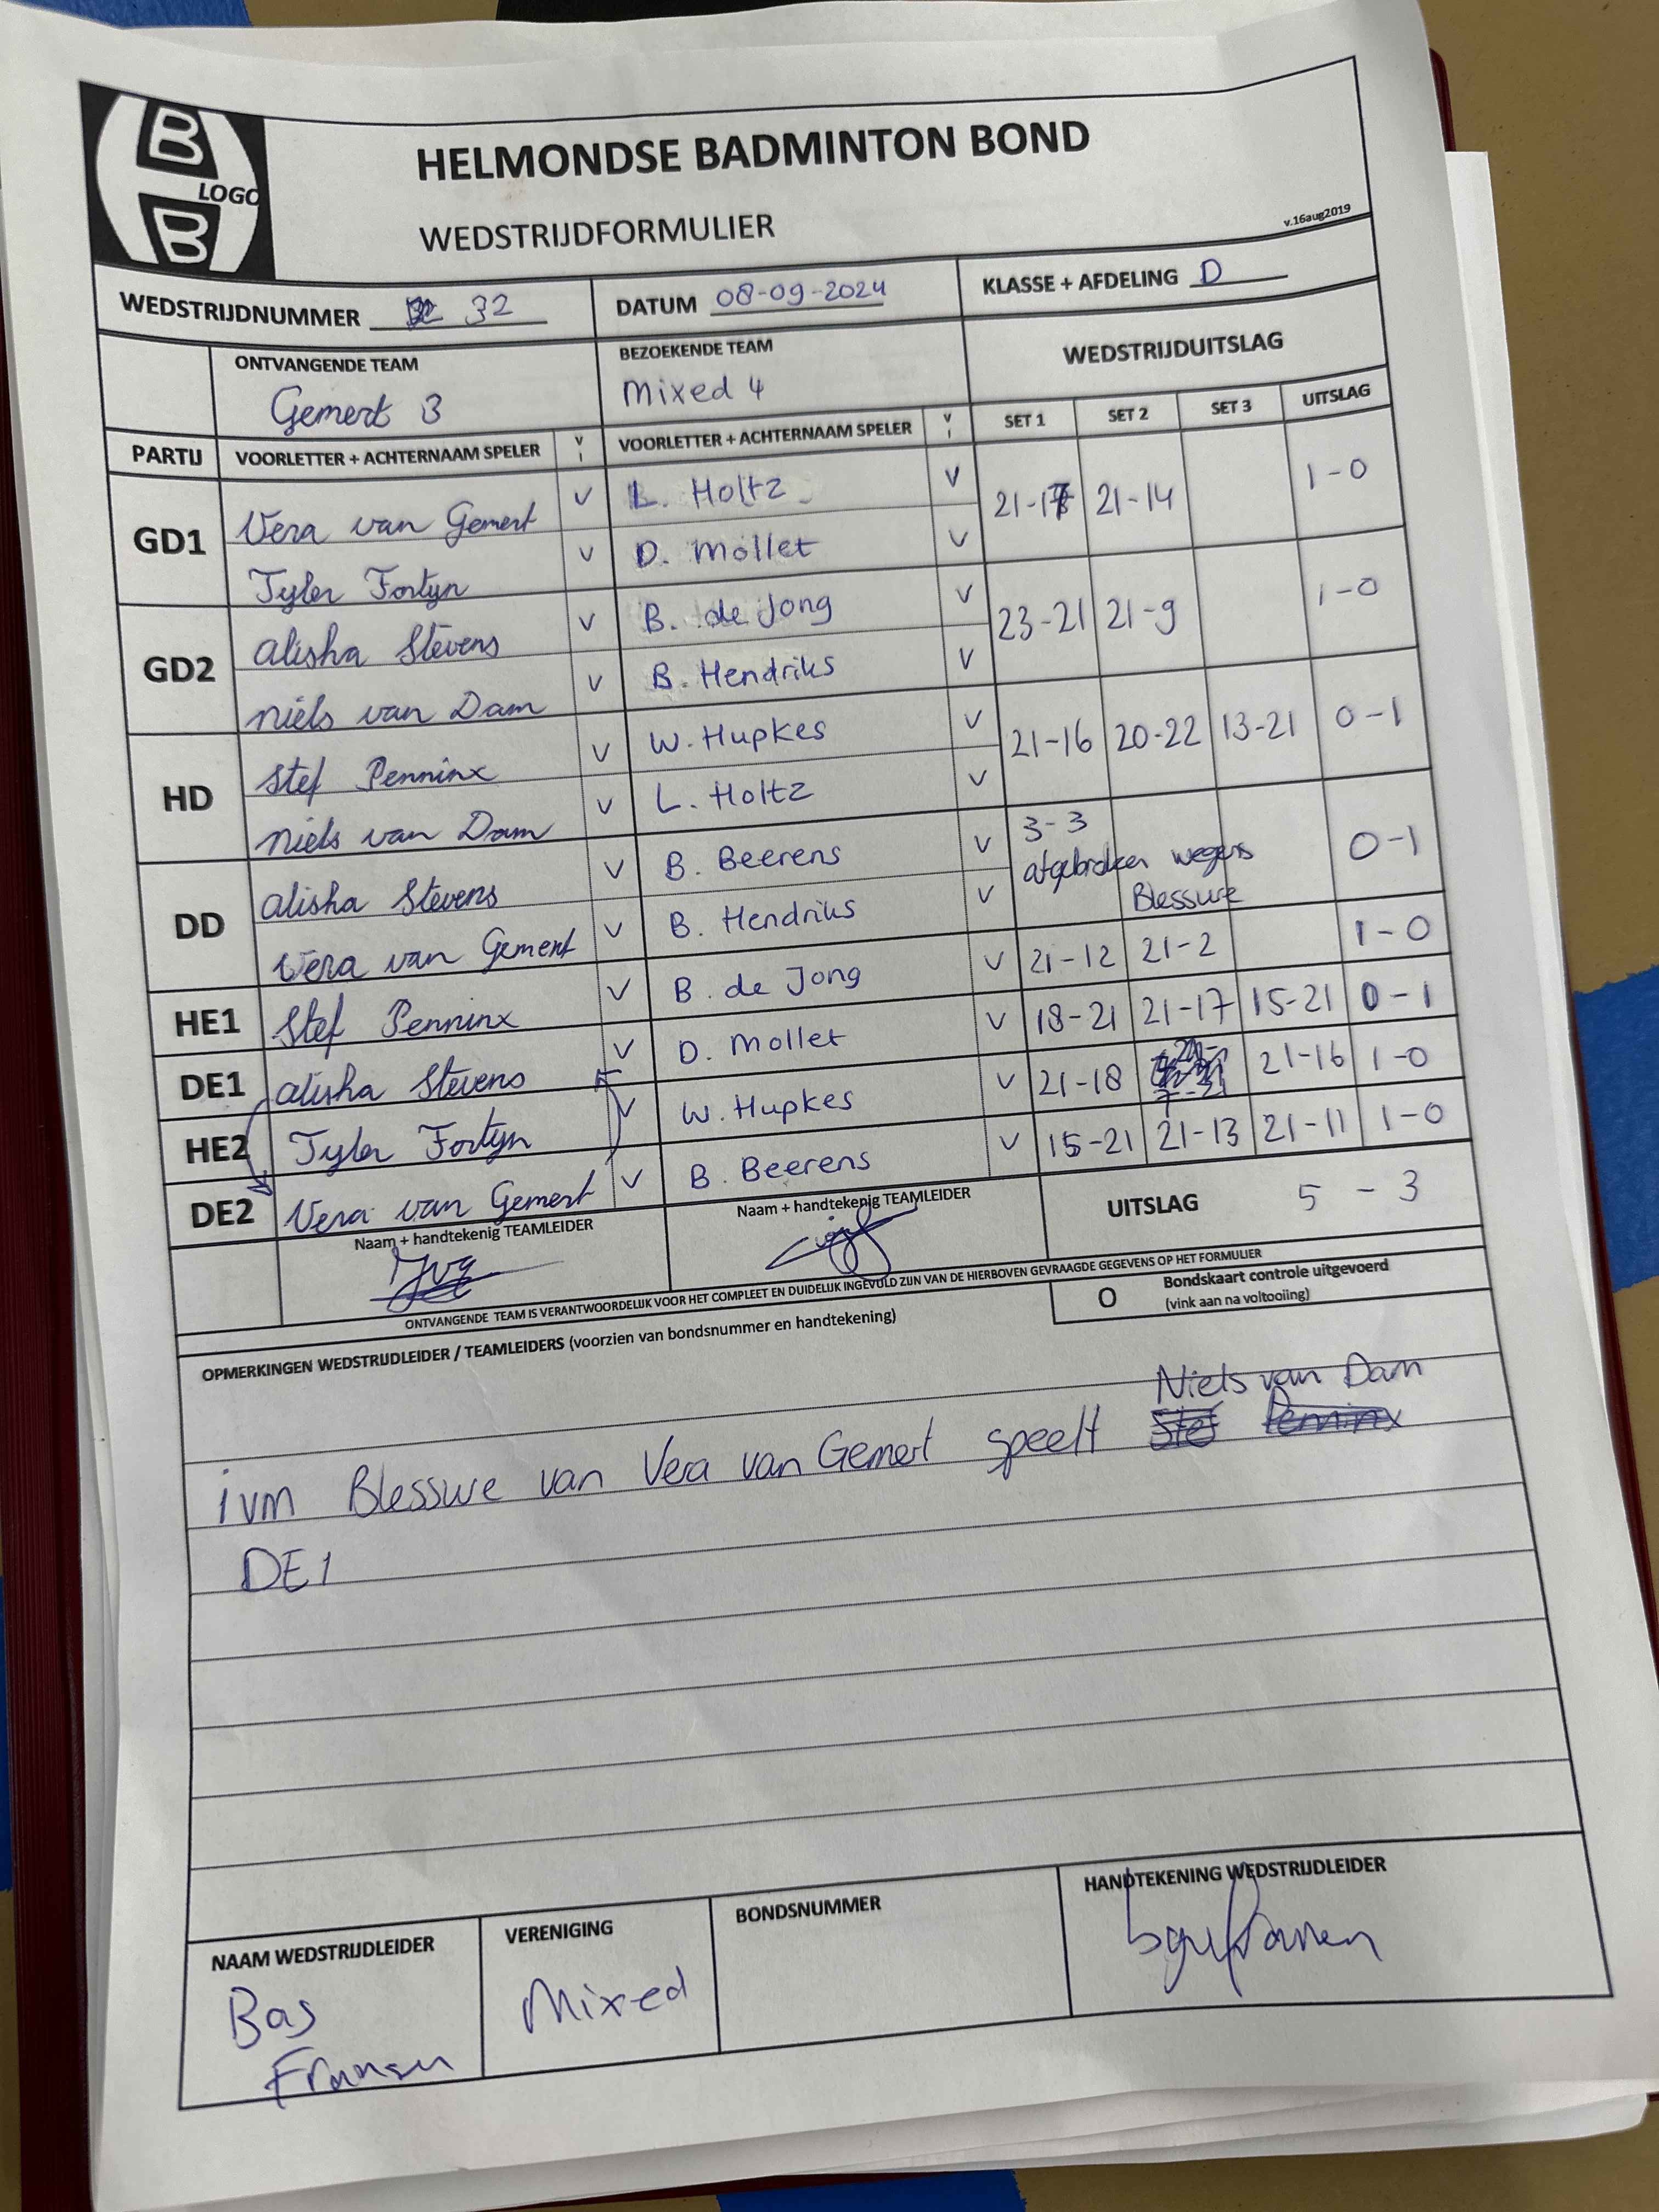 B
LOGO
B
HELMONDSE BADMINTON BOND
WEDSTRIJDFORMULIER
v.16aug2019
WEDSTRIJDNUMMER 32
DATUM 08-09-2024
KLASSE + AFDELING D
ONTVANGENDE TEAM
Gemert 3
BEZOEKENDE TEAM
Mixed 4
WEDSTRIJDUITSLAG
PARTIJ VOORLETTER + ACHTERNAAM SPELER V I VOORLETTER + ACHTERNAAM SPELER V I SET 1 SET 2 SET 3 UITSLAG
GD1 Vera van Gemert V L. Holtz V 21-17 21-14 1-0
Tyler Fortyn V D. Mollet V
GD2 Alisha Stevens V B. de Jong V 23-21 21-9 1-0
Niels van Dam V B. Hendriks V
HD Stef Penninx V W. Hupkes V 21-16 20-22 13-21 0-1
Niels van Dam V L. Holtz V
DD Alisha Stevens V B. Beerens V 3-3 afgebroken wegens Blessure 0-1
Vera van Gemert V B. Hendriks V
HE1 Stef Penninx V B. de Jong V 21-12 21-2 1-0
DE1 Alisha Stevens V D. Mollet V 18-21 21-17 15-21 0-1
HE2 Tyler Fortyn V W. Hupkes V 21-18 7-21 21-16 1-0
DE2 Vera van Gemert V B. Beerens V 15-21 21-13 21-11 1-0
Naam + handtekenig TEAMLEIDER
Naam + handtekenig TEAMLEIDER
UITSLAG 5 - 3
ONTVANGENDE TEAM IS VERANTWOORDELIJK VOOR HET COMPLEET EN DUIDELIJK INGEVULD ZIJN VAN DE HIERBOVEN GEVRAAGDE GEGEVENS OP HET FORMULIER
O Bondskaart controle uitgevoerd
(vink aan na voltooiing)
OPMERKINGEN WEDSTRIJDLEIDER / TEAMLEIDERS (voorzien van bondsnummer en handtekening)
Niels van Dam
ivm Blessure van Vera van Gemert speelt Stef Penninx
DE1
NAAM WEDSTRIJDLEIDER
Bas
Fransen
VERENIGING
Mixed
BONDSNUMMER
HANDTEKENING WEDSTRIJDLEIDER